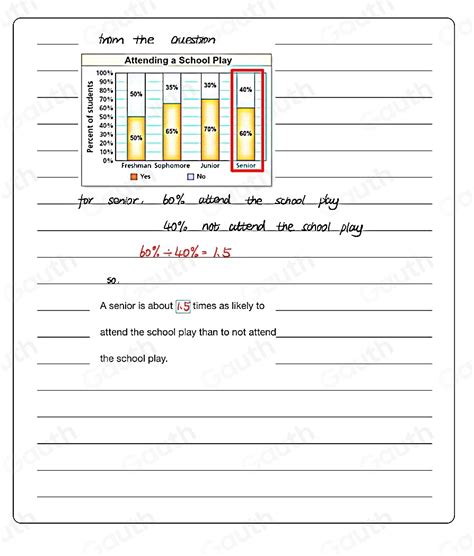 from the Question
Attending a School Play
Percent of students
100%
90%
80%
70%
60%
50%
40%
30%
20%
10%
0%
50% 35% 30% 40%
50% 65% 70% 60%
Freshman Sophomore Junior Senior
Yes No
for senior. 60% attend the school play
40% not attend the school play
60% ÷ 40% = 1.5
so.
A senior is about 1.5 times as likely to
attend the school play than to not attend
the school play.
Gauth